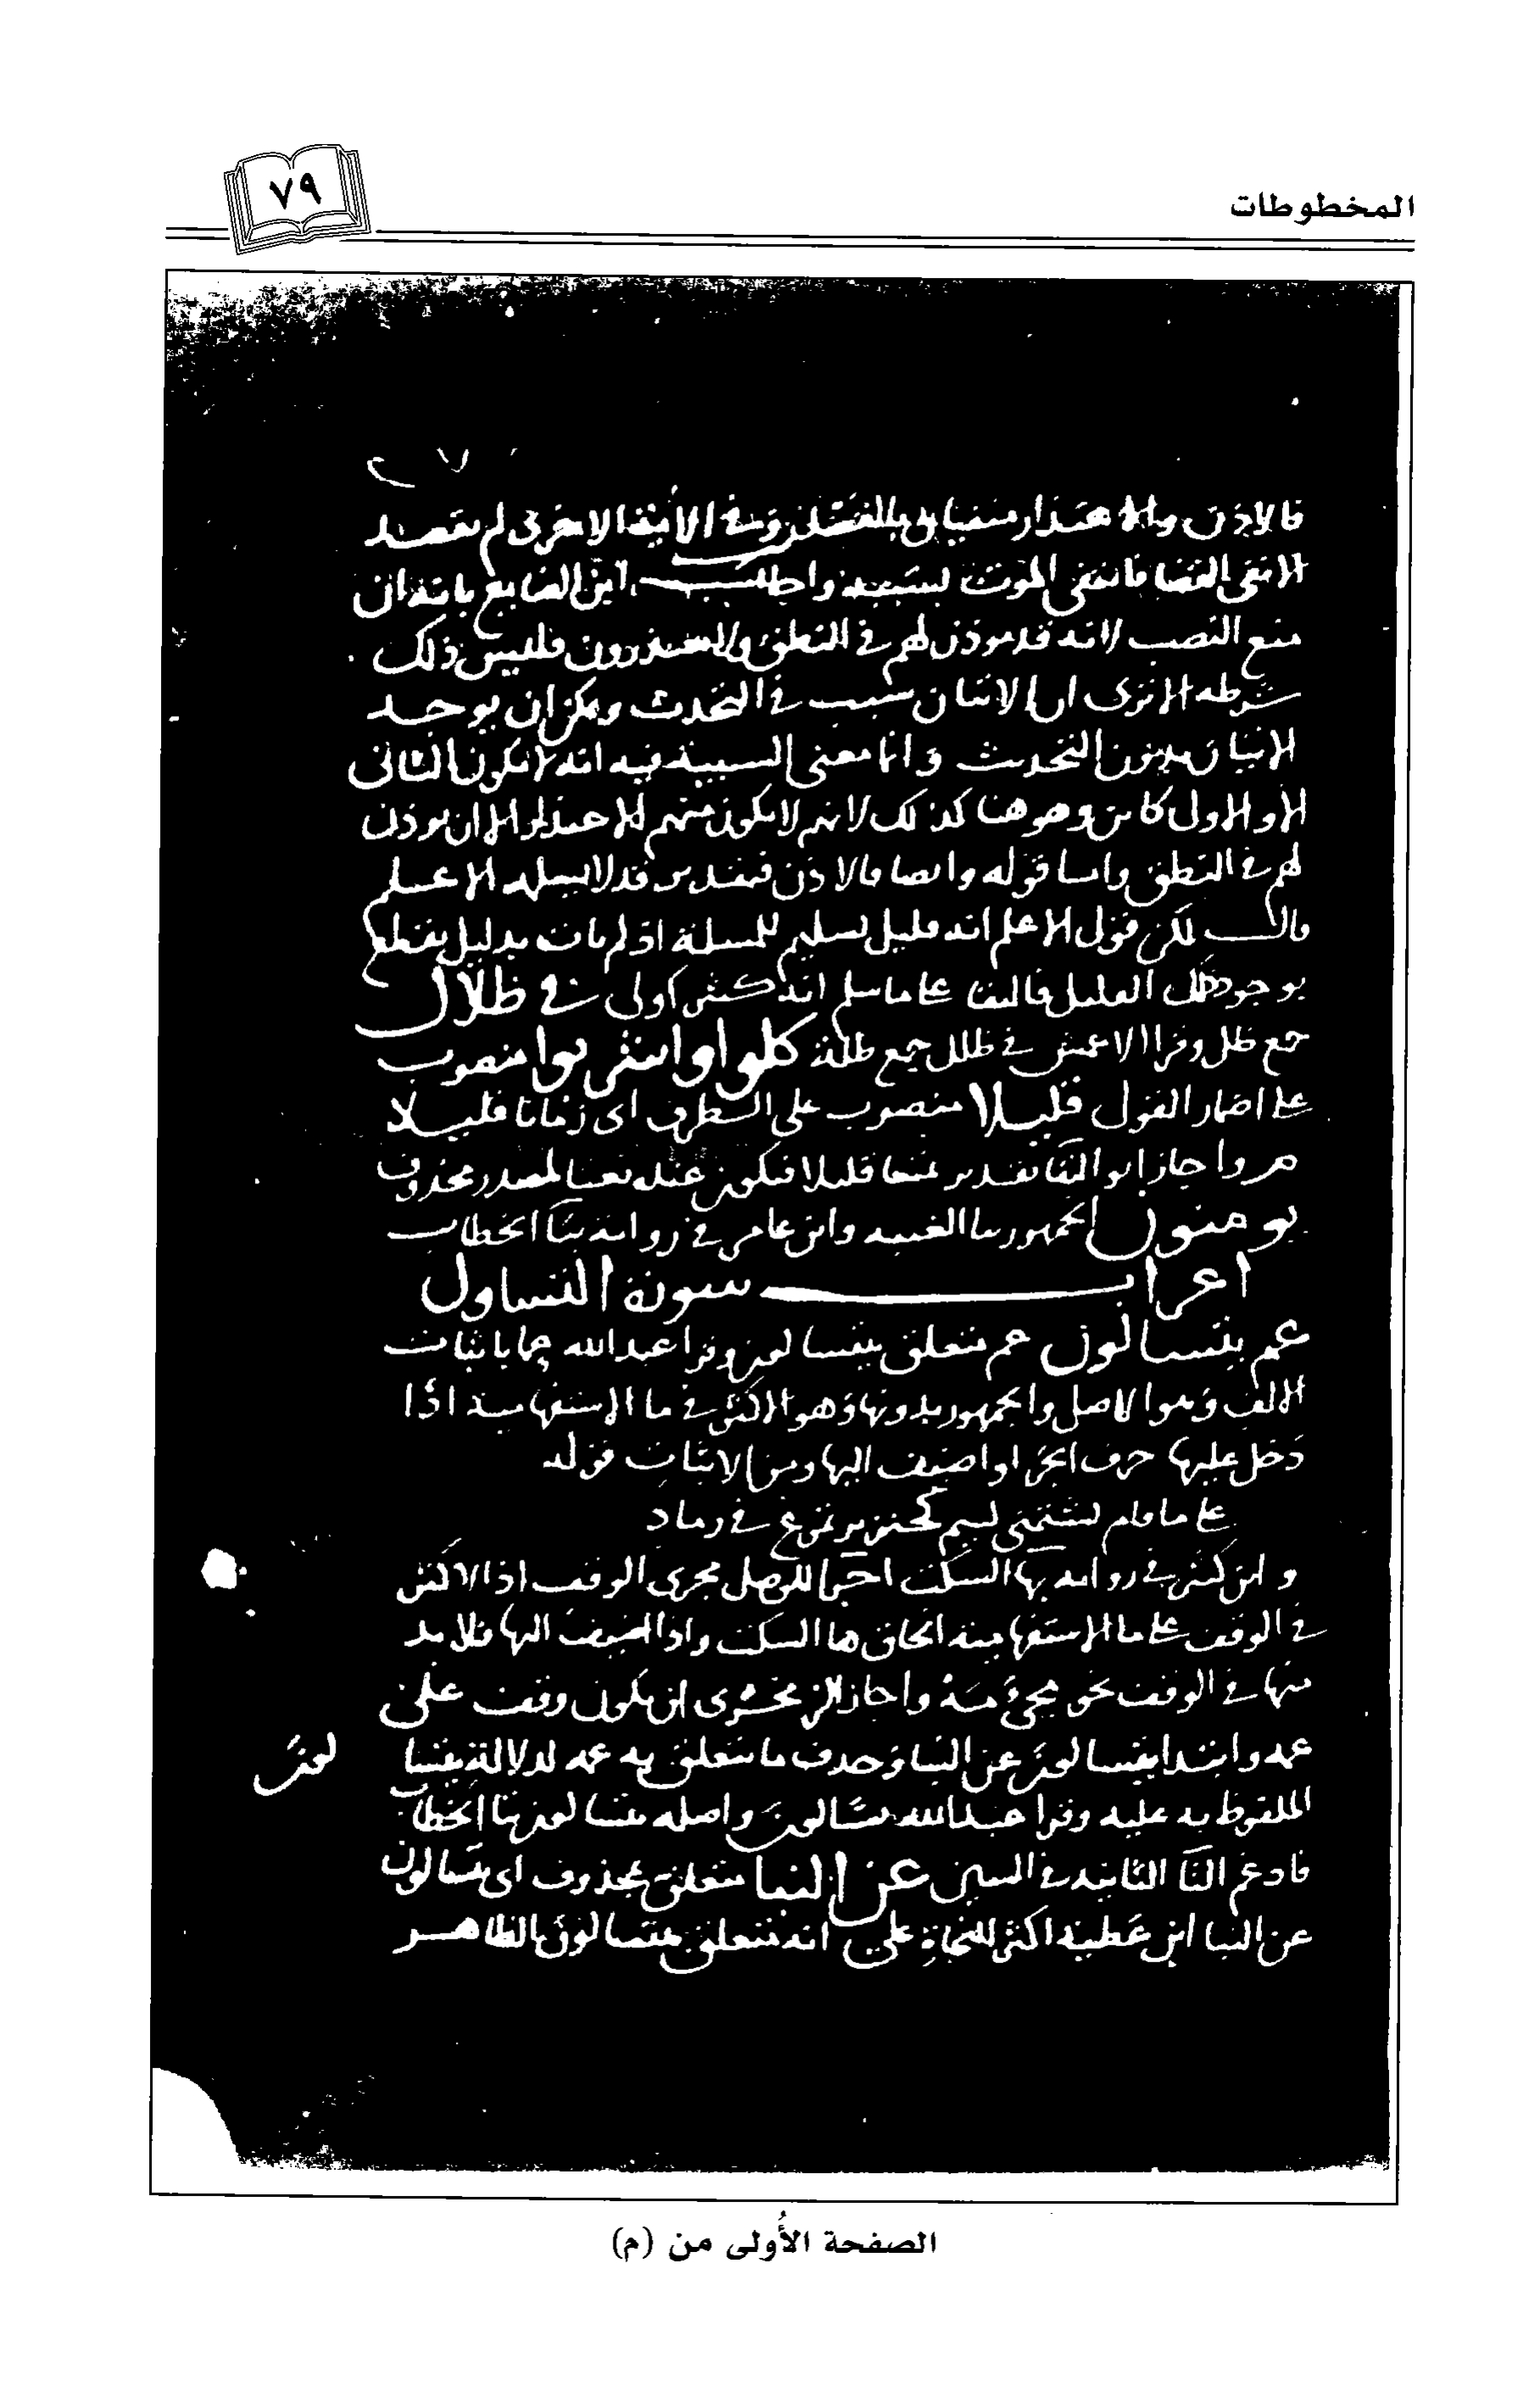 المخطوطات
٧٩
فالاذن والاعتذار منفيان وفى الأية الاخرى لم يقصد
الا نفى القضا فانتفى الموت لسببه واطلب ابن الضايع بانه ان
منع النصب لانه قد يوذن لهم فى النطق ولا يعتذرون فليس ذلك
شرطه الا ترى ان الاتيان سبب فى التحدث ويمكن ان يوجد
الاتيان بدون التحدث وانما معنى السببية فيه انه لا يكون الثانى
الا والاول كاين وهو هنا كذلك لانه لا يكون منهم الا ان يوذن
لهم فى النطق واما قوله وايضا فالاذن قد لا
قال لكن قول الاعلم انه قليل تسليم للمسلة اذ لم يات بدليل يقطع
بوجود ذلك القليل فالبقا على ما سلم انه كثير اولى فى ظلال
جمع ظل وقرا الاعمش فى ظلل جمع ظلة كلوا واشربوا منصوب
على اضمار القول قليلا منصوب على الظرف اى زمانا قليلا
واجاز ابو البقا تقدير تمتعا قليلا فيكون عنده نعتا لمصدر محذوف
يومنون الجمهور بيا الغيبه وابن عامر فى رواية بتا الخطاب
اعراب سورة التساول
عم يتسالون عم متعلق بيتسالون وقرا عبد الله عما باثبات
الالف وهو الاصل والجمهور بدونها وهو الاكثر فى ما الاستفهامية اذا
دخل عليها حرف الجر او اضيف اليها ومن الاثبات قوله
على ما قام يشتمنى ليم كخنزير تمرغ فى رماد
وابن كثير فى رواية بها السكت اجرا للوصل مجرى الوقف اذ الاكثر
فى الوقف على ما الاستفهامية الحاق ها السكت واذا اضيف اليها فلا بد
منها فى الوقف نحو مجئ مه واجاز الزمخشرى ان يكون وقف على
عمه وابتدا يتسالون عن النبا وحذف ما يتعلق به عمه لدلالة يتسا
لون
الملفوظ به عليه وقرا عبد الله تسالون واصله تتسالون بتا الخطاب
فادغم التا الثانيه فى السين عن النبا متعلق بمحذوف اى يتسالون
عن النبا ابن عطية اكثر النحاة على انه متعلق بيتسالون الظاهر
الصفحة الأُولى من (م)